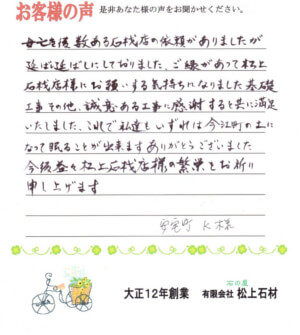 お客様の声 是非あなた様の声をお聞かせください。
亡き後数ある石材店の依頼がありましたが
延ばし延ばしにしておりました、ご縁があって松上
石材店様にお願いする気持ちになりました 基礎
工事その他、誠意ある工事に感謝すると共に満足
いたしました、これで私達もいずれは今江町の土に
なって眠ることが出来ます ありがとうございました
今後益々松上石材店様の繁栄をお祈り
申し上げます
K様
大正12年創業 有限会社 松上石材